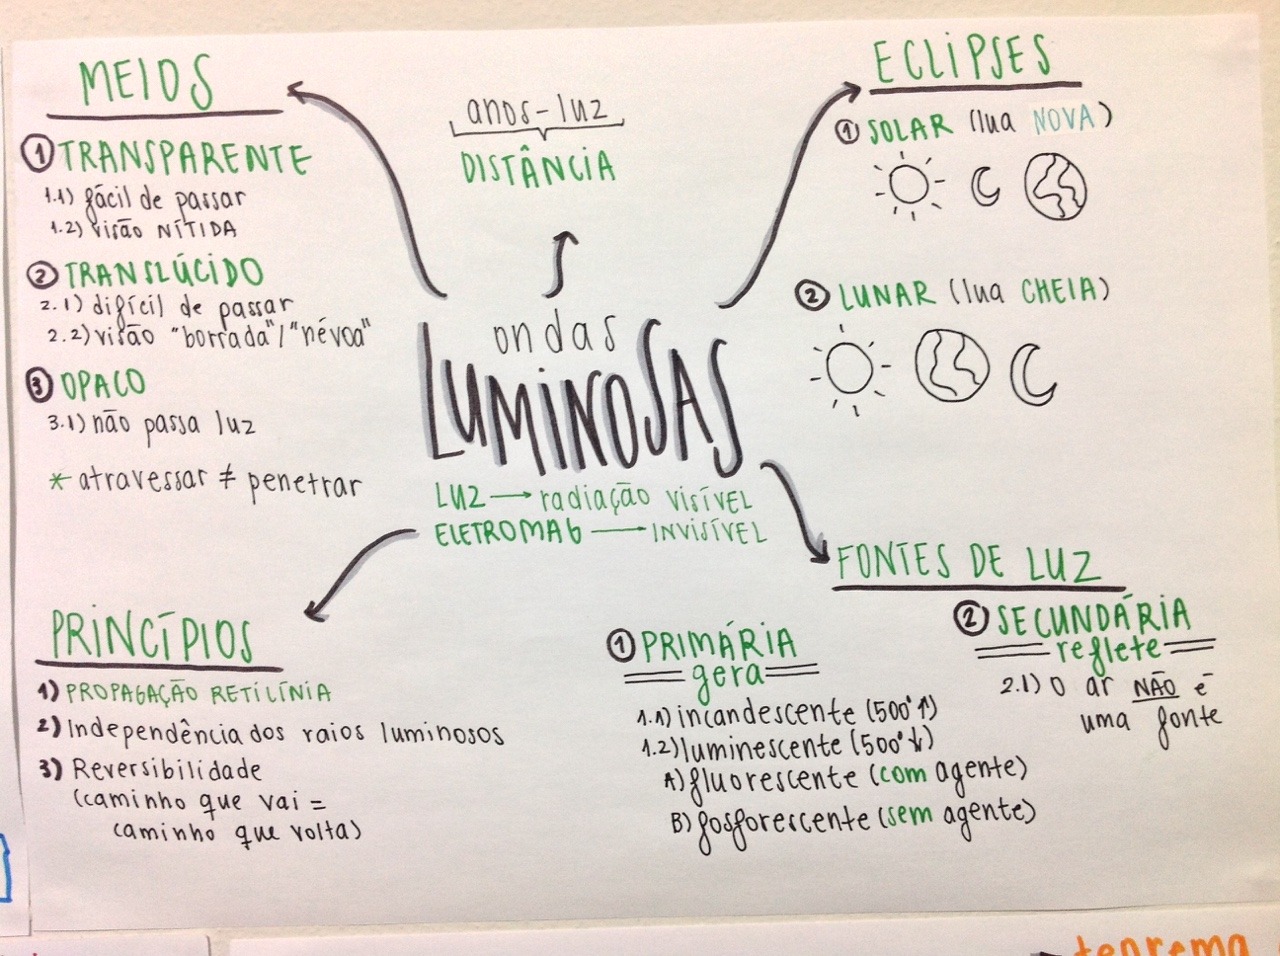 MEIOS
① TRANSPARENTE
1.1) fácil de passar
1.2) visão NÍTIDA
② TRANSLÚCIDO
2.1) difícil de passar
2.2) visão "borrada"/"névoa"
③ OPACO
3.1) não passa luz
* atravessar ≠ penetrar
anos-luz
DISTÂNCIA
ECLIPSES
① SOLAR (lua NOVA)
② LUNAR (lua CHEIA)
ondas
LUMINOSAS
LUZ → radiação VISÍVEL
ELETROMAG → INVISÍVEL
PRINCÍPIOS
1) PROPAGAÇÃO RETILÍNIA
2) Independência dos raios luminosos
3) Reversibilidade
(caminho que vai =
caminho que volta)
FONTES DE LUZ
① PRIMÁRIA
gera
1.1) incandescente (500° ↑)
1.2) luminescente (500° ↓)
A) fluorescente (com agente)
B) fosforescente (sem agente)
② SECUNDÁRIA
reflete
2.1) O ar NÃO é
uma fonte
teorema